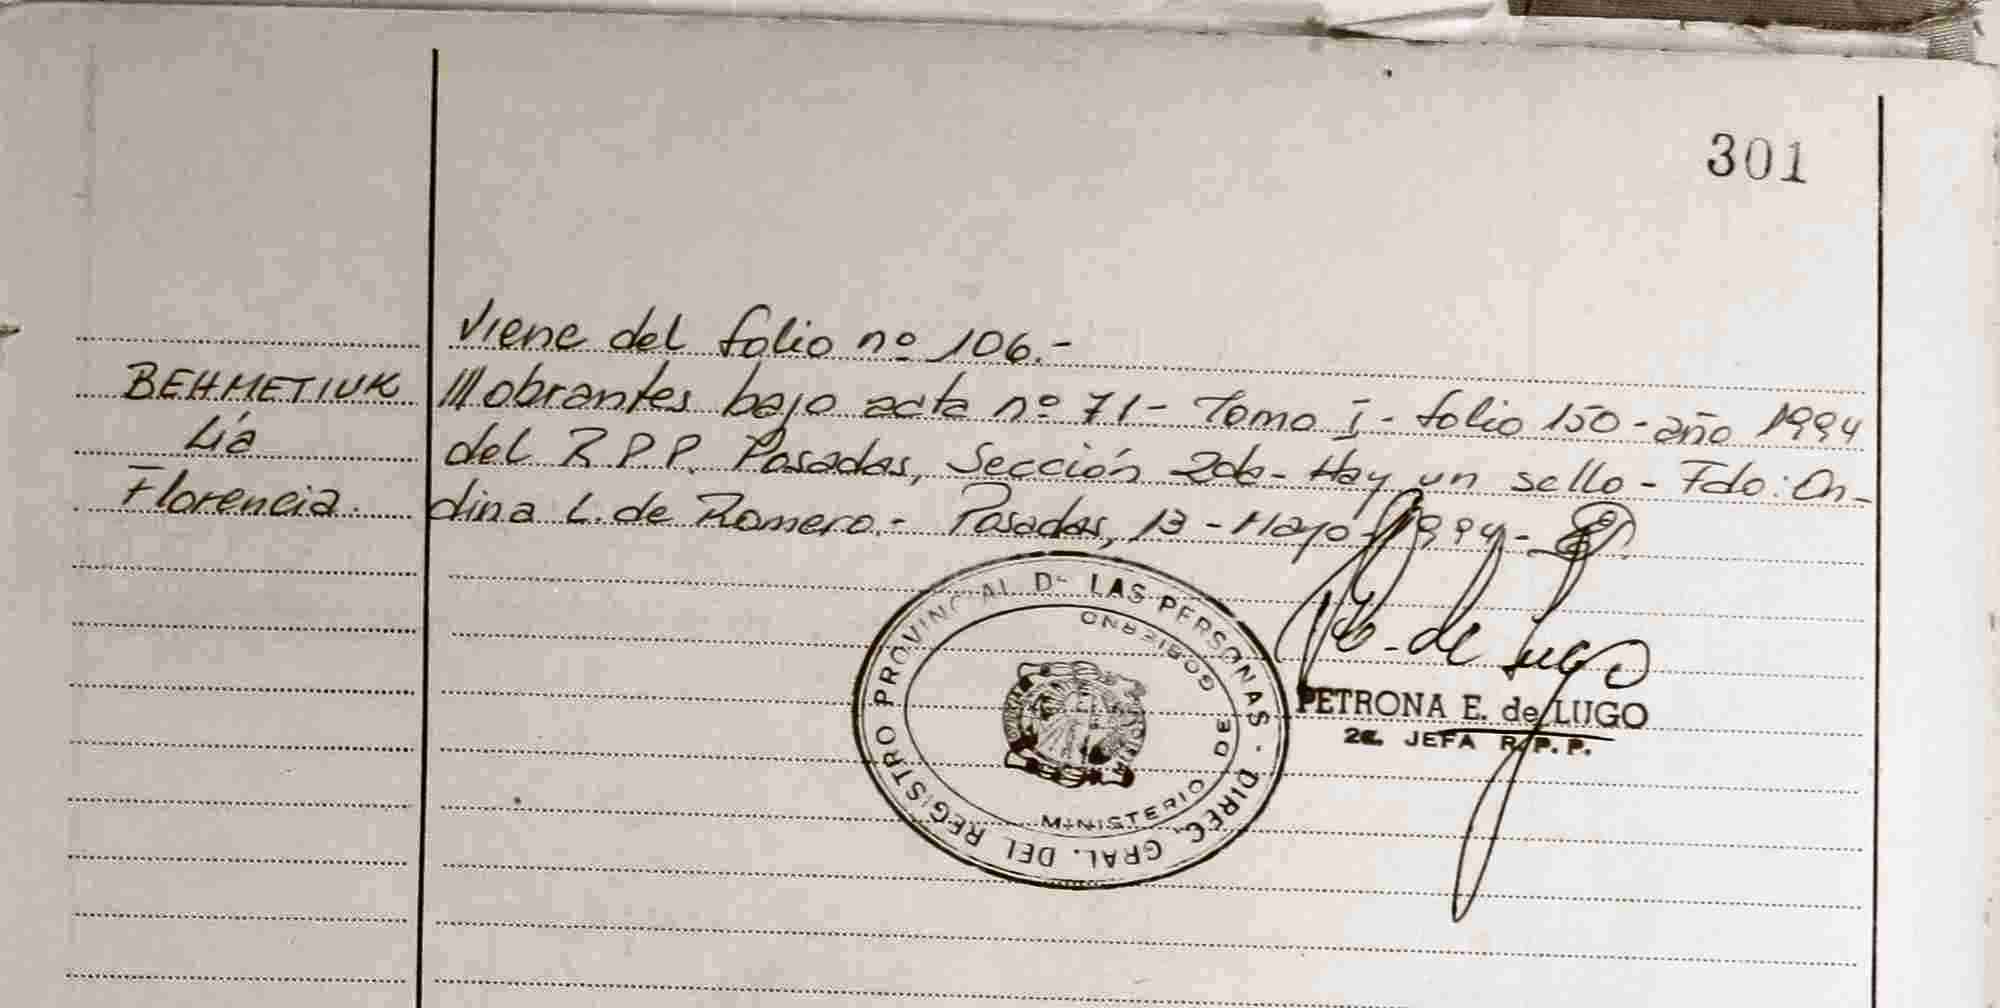 301
Viene del folio nº 106.-
BEHMETIUK
///obrantes bajo acta nº 71- Tomo I- folio 150-año 1994
Lía
del R.P.P. Posadas, Sección 2da- Hay un sello- Fdo: On-
Florencia.
dina L. de Romero.- Posadas, 13-Mayo-1994-
REGISTRO PROVINCIAL DE LAS PERSONAS · DIREC. GRAL. DEL
MINISTERIO DE GOBIERNO
de Lugo
PETRONA E. de LUGO
2a. JEFA R.P.P.